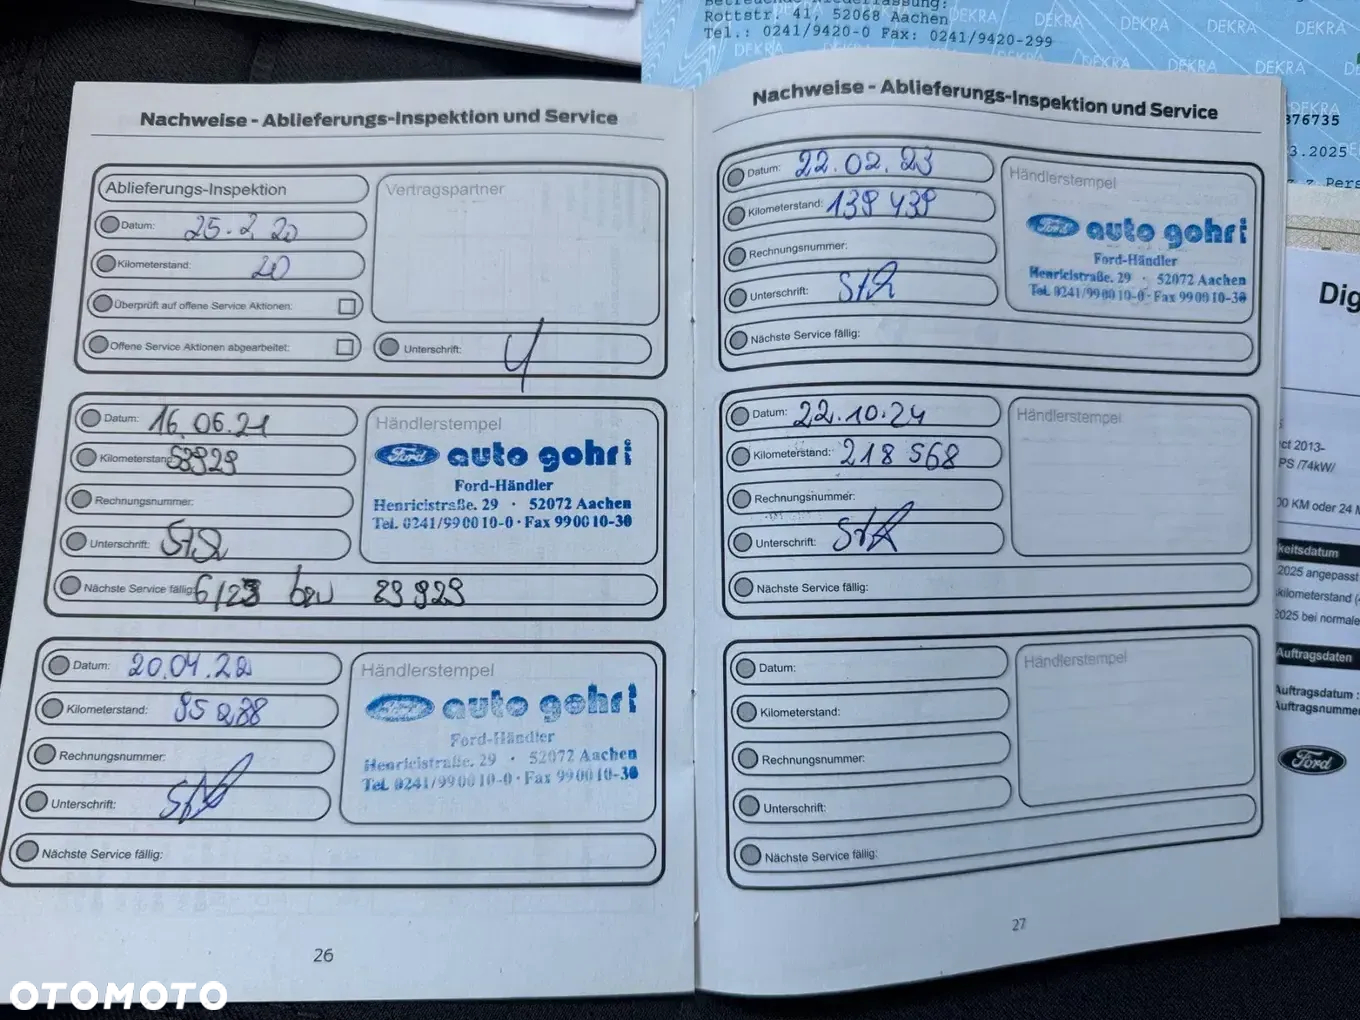 Betreuende Niederlassung:
Rottstr. 41, 52068 Aachen
Tel.: 0241/9420-0 Fax: 0241/9420-299
DEKRA DEKRA DEKRA DEKRA
DEKRA DEKRA DEKRA
DEKRA
376735
3.2025
z.Pers
Nachweise - Ablieferungs-Inspektion und Service
Ablieferungs-Inspektion
Datum: 25.2.20
Kilometerstand: 20
Überprüft auf offene Service Aktionen:
Offene Service Aktionen abgearbeitet:
Vertragspartner
Unterschrift:
Datum: 16.06.21
Kilometerstand: 59929
Rechnungsnummer:
Unterschrift:
Nächste Service fällig: 6/23 bzw 89929
Händlerstempel
Ford auto gohr
Ford-Händler
Henricistraße. 29 · 52072 Aachen
Tel. 0241/990010-0 · Fax 990010-30
Datum: 20.04.22
Kilometerstand: 95288
Rechnungsnummer:
Unterschrift:
Nächste Service fällig:
Händlerstempel
Ford auto gohr
Ford-Händler
Henricistraße. 29 · 52072 Aachen
Tel. 0241/990010-0 · Fax 990010-30
26
Nachweise - Ablieferungs-Inspektion und Service
Datum: 22.02.23
Kilometerstand: 139 439
Rechnungsnummer:
Unterschrift:
Nächste Service fällig:
Händlerstempel
Ford auto gohr
Ford-Händler
Henricistraße. 29 · 52072 Aachen
Tel. 0241/990010-0 · Fax 990010-30
Datum: 22.10.24
Kilometerstand: 218 568
Rechnungsnummer:
Unterschrift:
Nächste Service fällig:
Händlerstempel
Datum:
Kilometerstand:
Rechnungsnummer:
Unterschrift:
Nächste Service fällig:
Händlerstempel
27
Dig
ct 2013-
PS /74kW/
00 KM oder 24 M
keitsdatum
2025 angepasst
kilometerstand
2025 bei normale
Auftragsdaten
Auftragsdatum :
Auftragsnumme
Ford
OTOMOTO